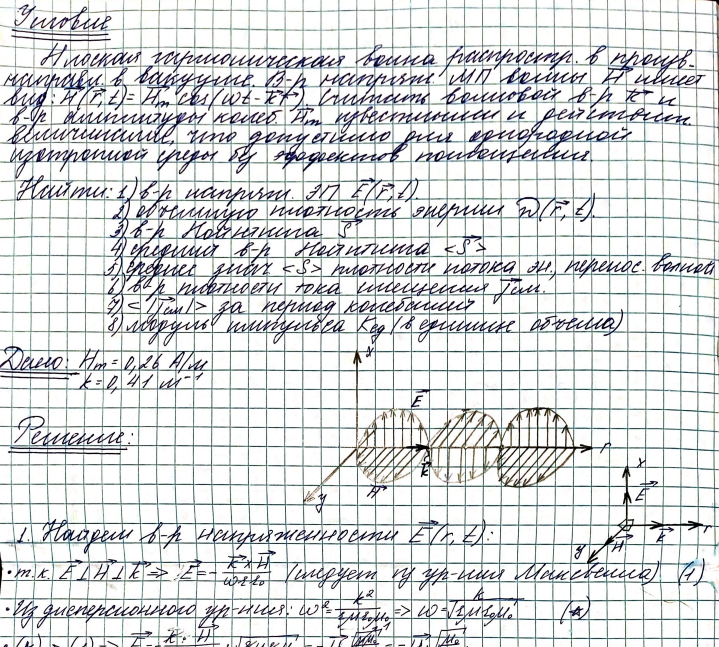 Условие
Плоская гармоническая волна распростр. в произв.
направл. в вакууме. В-р напряж. МП волны H⃗ имеет
вид: H⃗(r⃗,t)=H⃗m cos(ωt-k⃗r⃗). Считать волновой в-р k⃗ и
в-р амплитуды колеб. H⃗m известными и действит.
величинами, что допустимо для однородной
изотропной среды без эффектов поглощения.
Найти: 1) в-р напряж. ЭП E⃗(r⃗,t).
2) объемную плотность энергии
3) в-р Пойнтинга S⃗
4) средний в-р Пойнтинга <S⃗>
5) среднее знач <S> плотности потока эн., перенос. волной
6) в-р плотности тока смещения j⃗см.
7) <|j⃗см|> за период колебаний
8) модуль импульса Kед (в единице объема)
Дано: Hm=0,26 А/м
k=0,41 м⁻¹
Решение:
x
E⃗
k⃗
r
y
H⃗
x
E⃗
r
y
H⃗
k⃗
1. Найдем в-р напряженности E⃗(r,t):
• т.к. E⃗⊥H⃗⊥k⃗ => E⃗=-k⃗×H⃗/ωεε₀ (следует из ур-ния Максвелла) (1)
• Из дисперсионного ур-ния: ω²=k²/εμε₀μ₀ => ω=k/√εμε₀μ₀ (*)